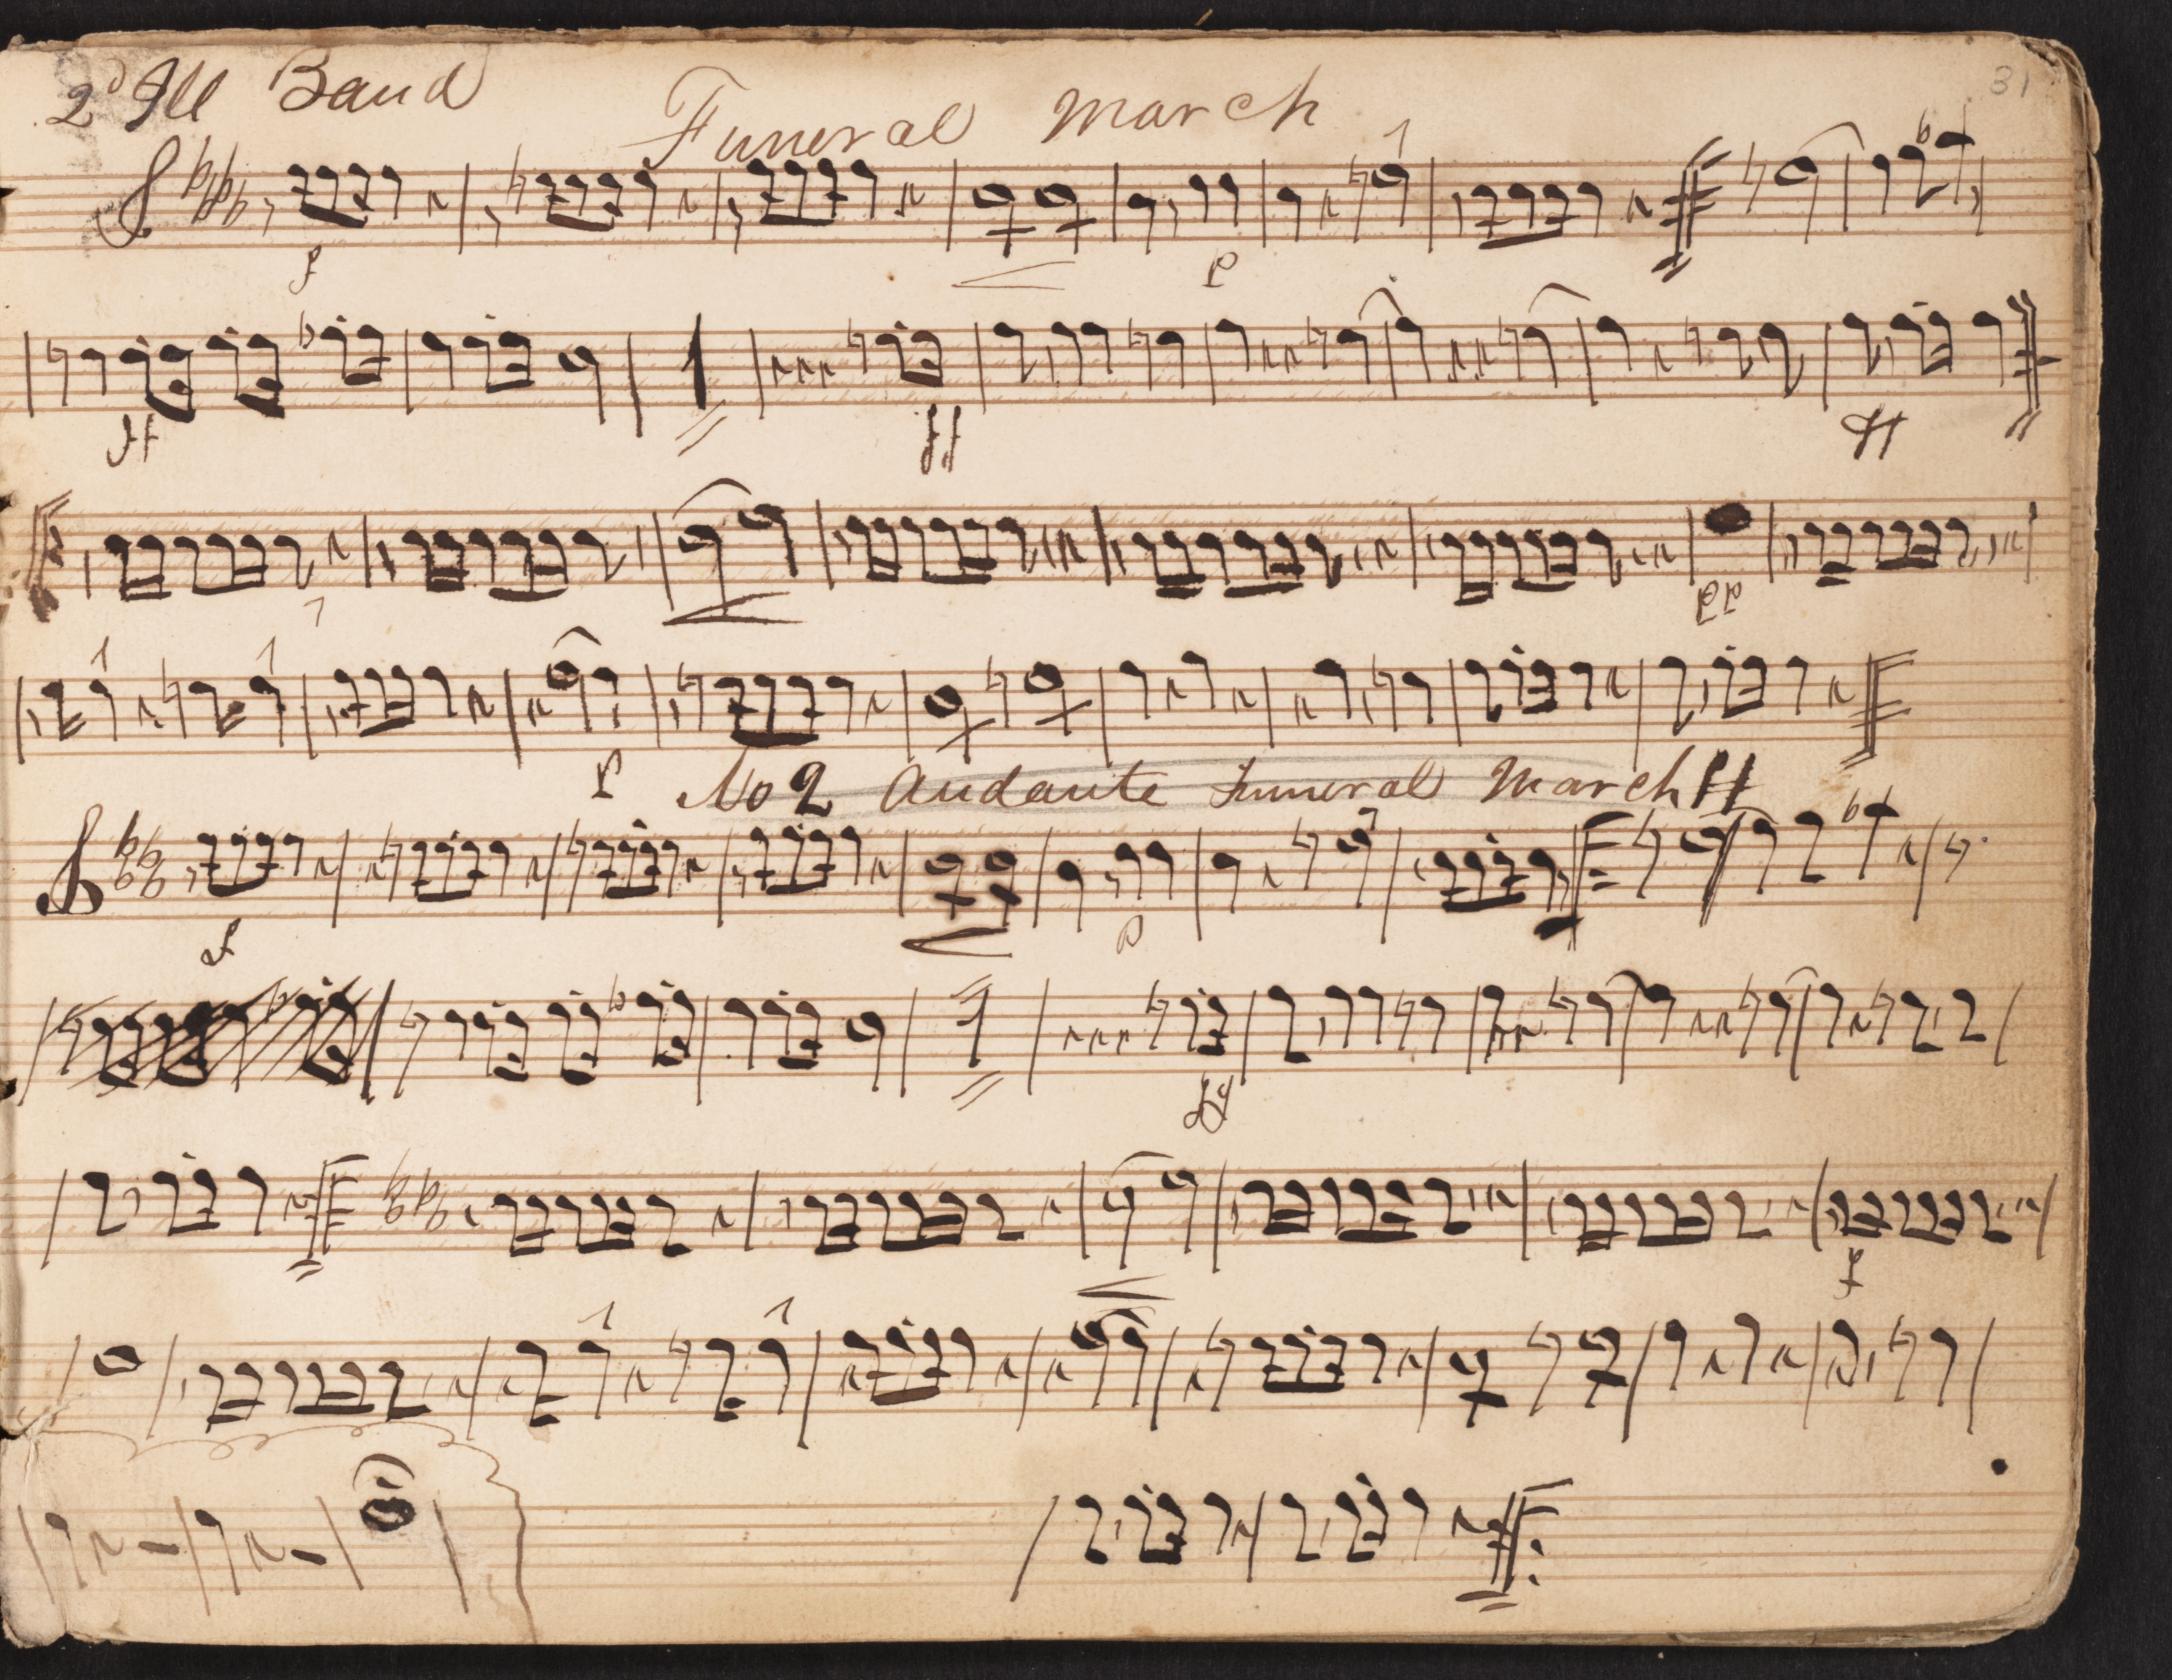 2d Ill Band
Funeral March
31
f
p
1
ff
ff
ff
p
No 2 Andante Funeral March ff
f
p
1
ff
f